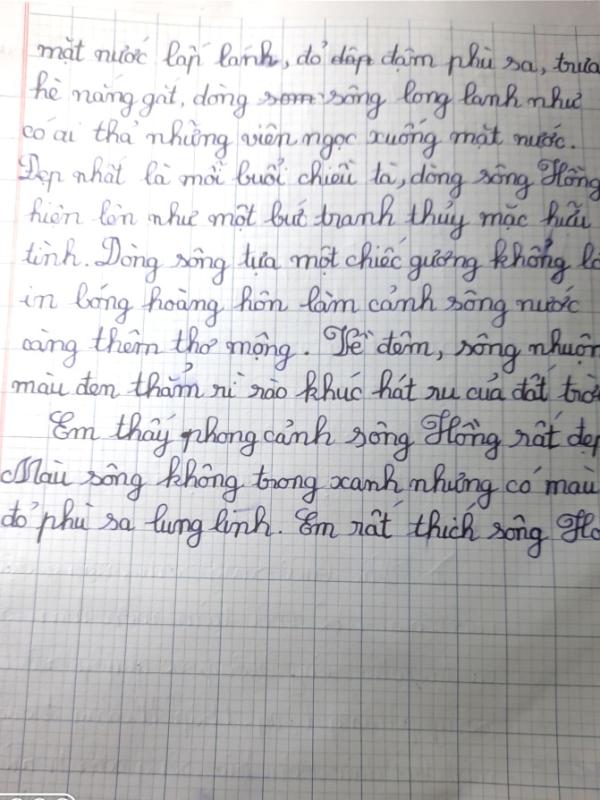 mặt nước lấp lánh, đỏ dập dậm phù sa, trưa
hè nắng gắt, dòng som sông long lanh như
có ai thả những viên ngọc xuống mặt nước.
Đẹp nhất là mỗi buổi chiều tà, dòng sông Hồng
hiện lên như một bức tranh thủy mặc hữu
tình. Dòng sông tựa một chiếc gương khổng lồ
in bóng hoàng hôn làm cảnh sông nước
càng thêm thơ mộng. Về đêm, sông nhuộm
màu đen thẳm rì rào khúc hát ru của đất trời
Em thấy phong cảnh sông Hồng rất đẹp
Màu sông không trong xanh nhưng có màu
đỏ phù sa lung linh. Em rất thích sông Hồ